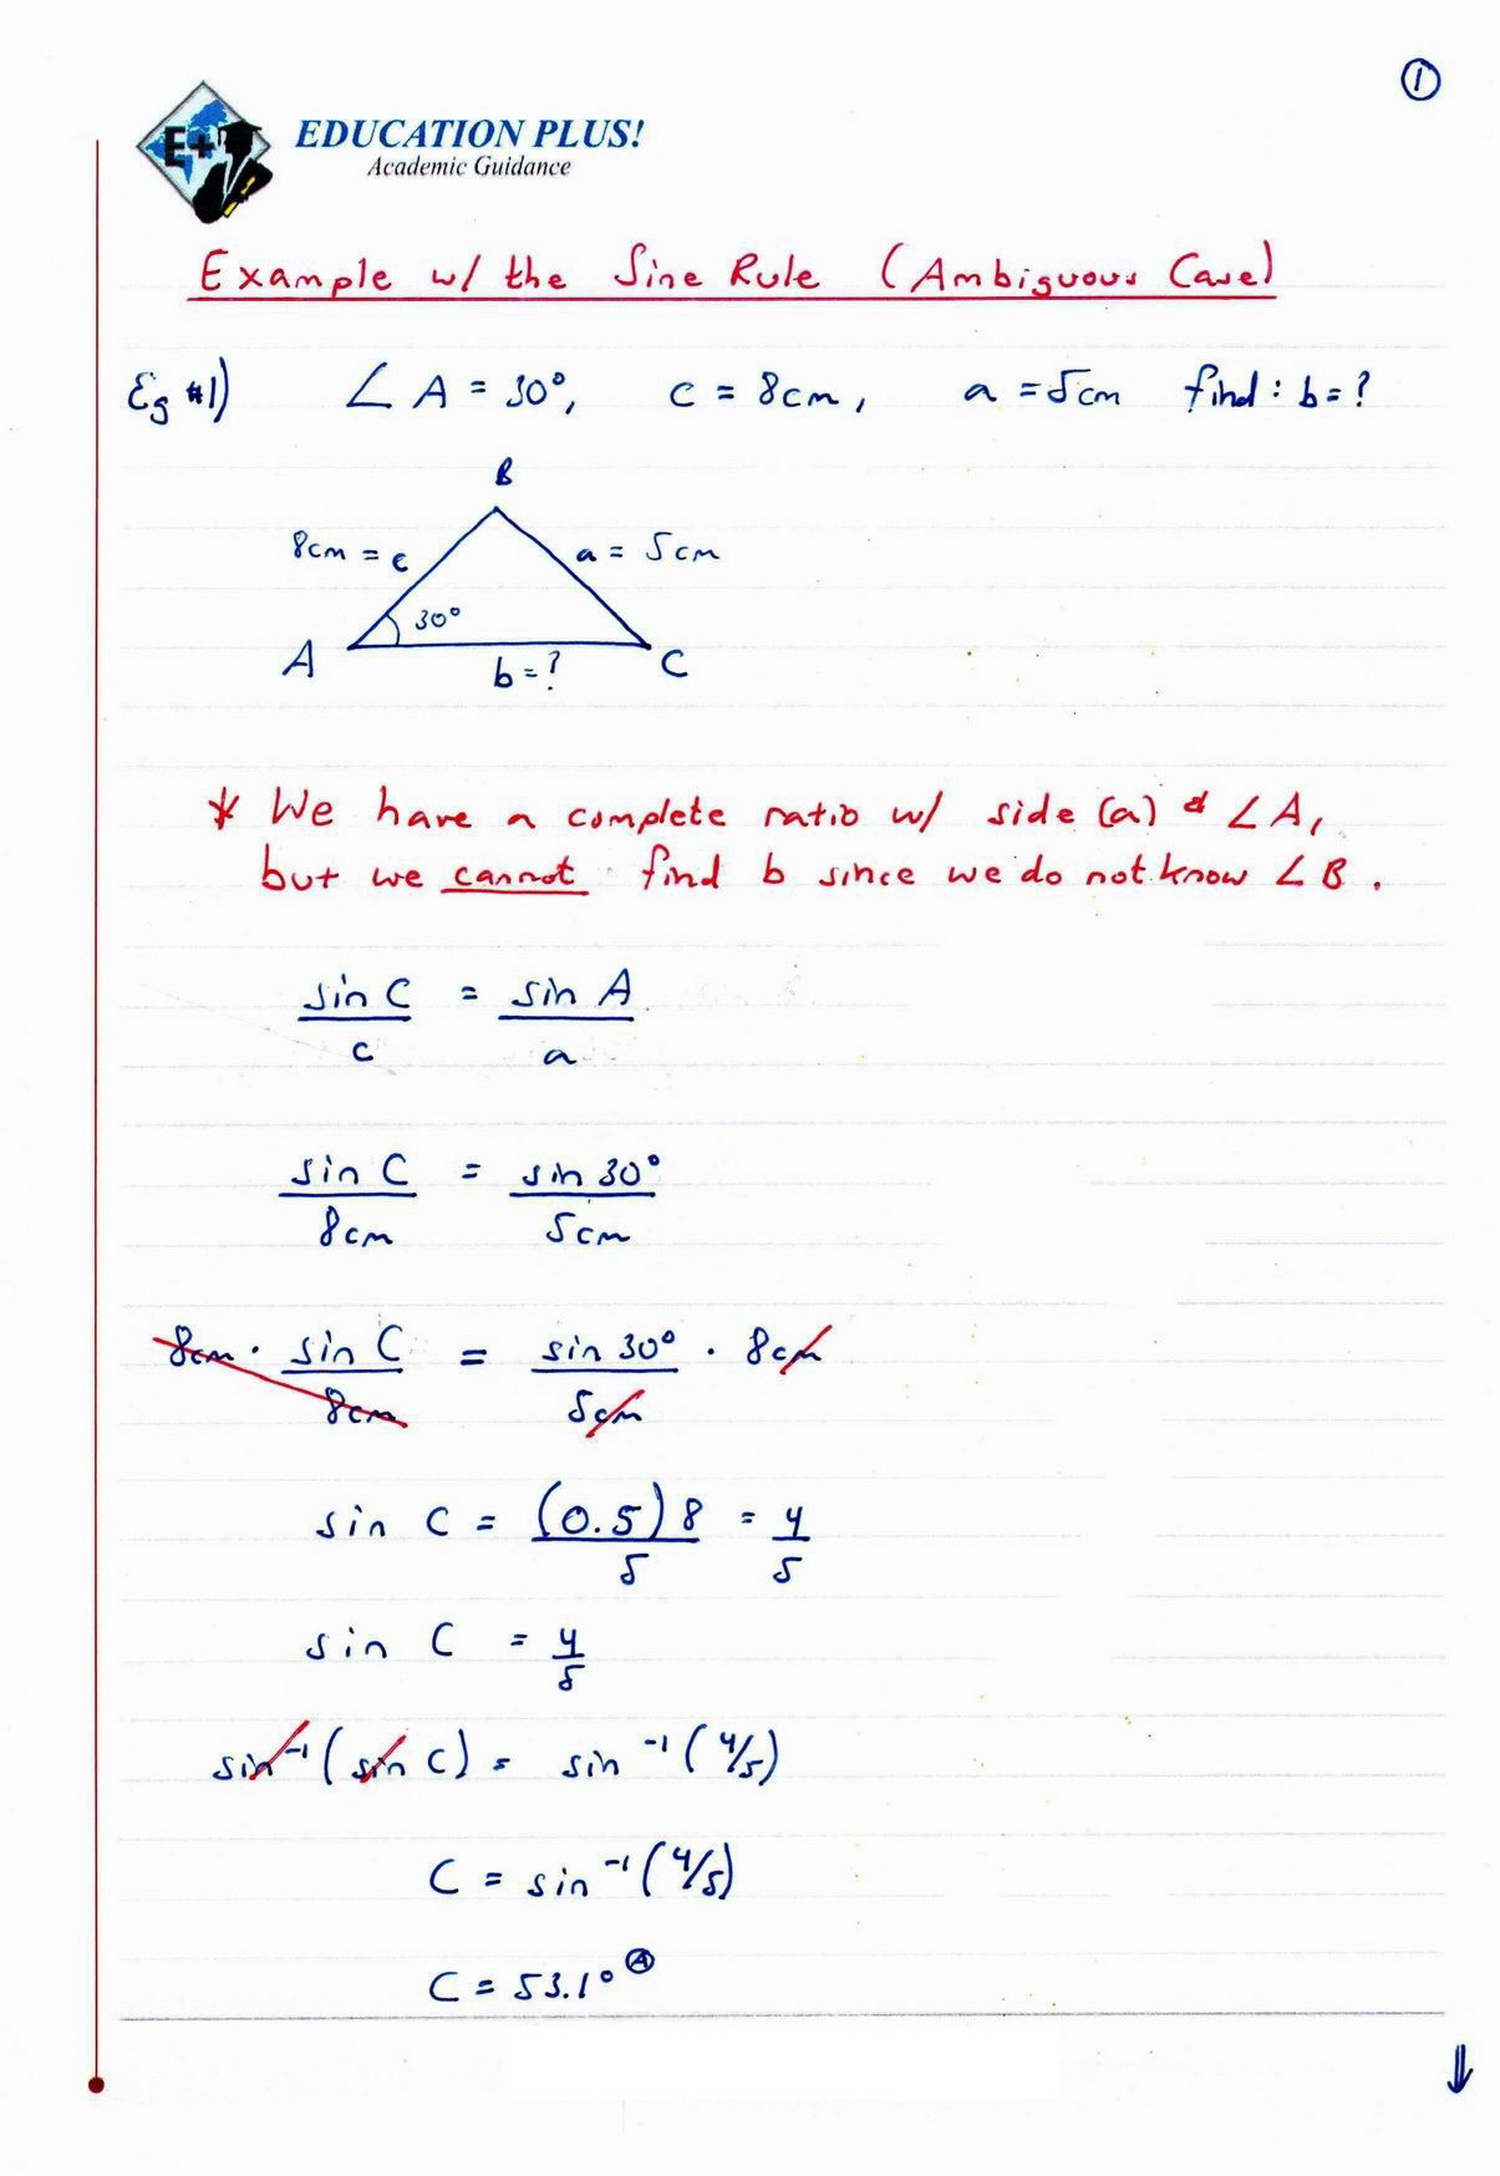 ①
E+
EDUCATION PLUS!
Academic Guidance
Example w/ the Sine Rule (Ambiguous Case)
Eg #1) ∠A = 30°, c = 8cm, a = 5cm find: b = ?
B
8cm = c a = 5cm
30°
A b = ? C
* We have a complete ratio w/ side (a) & ∠A,
but we cannot find b since we do not know ∠B.
sin C = sin A
c a
sin C = sin 30°
8cm 5cm
8cm · sin C = sin 30° · 8cm
8cm 5cm
sin C = (0.5)8 = 4
5 5
sin C = 4
5
sin⁻¹(sin C) = sin⁻¹(4/5)
C = sin⁻¹(4/5)
C = 53.1° Ⓐ